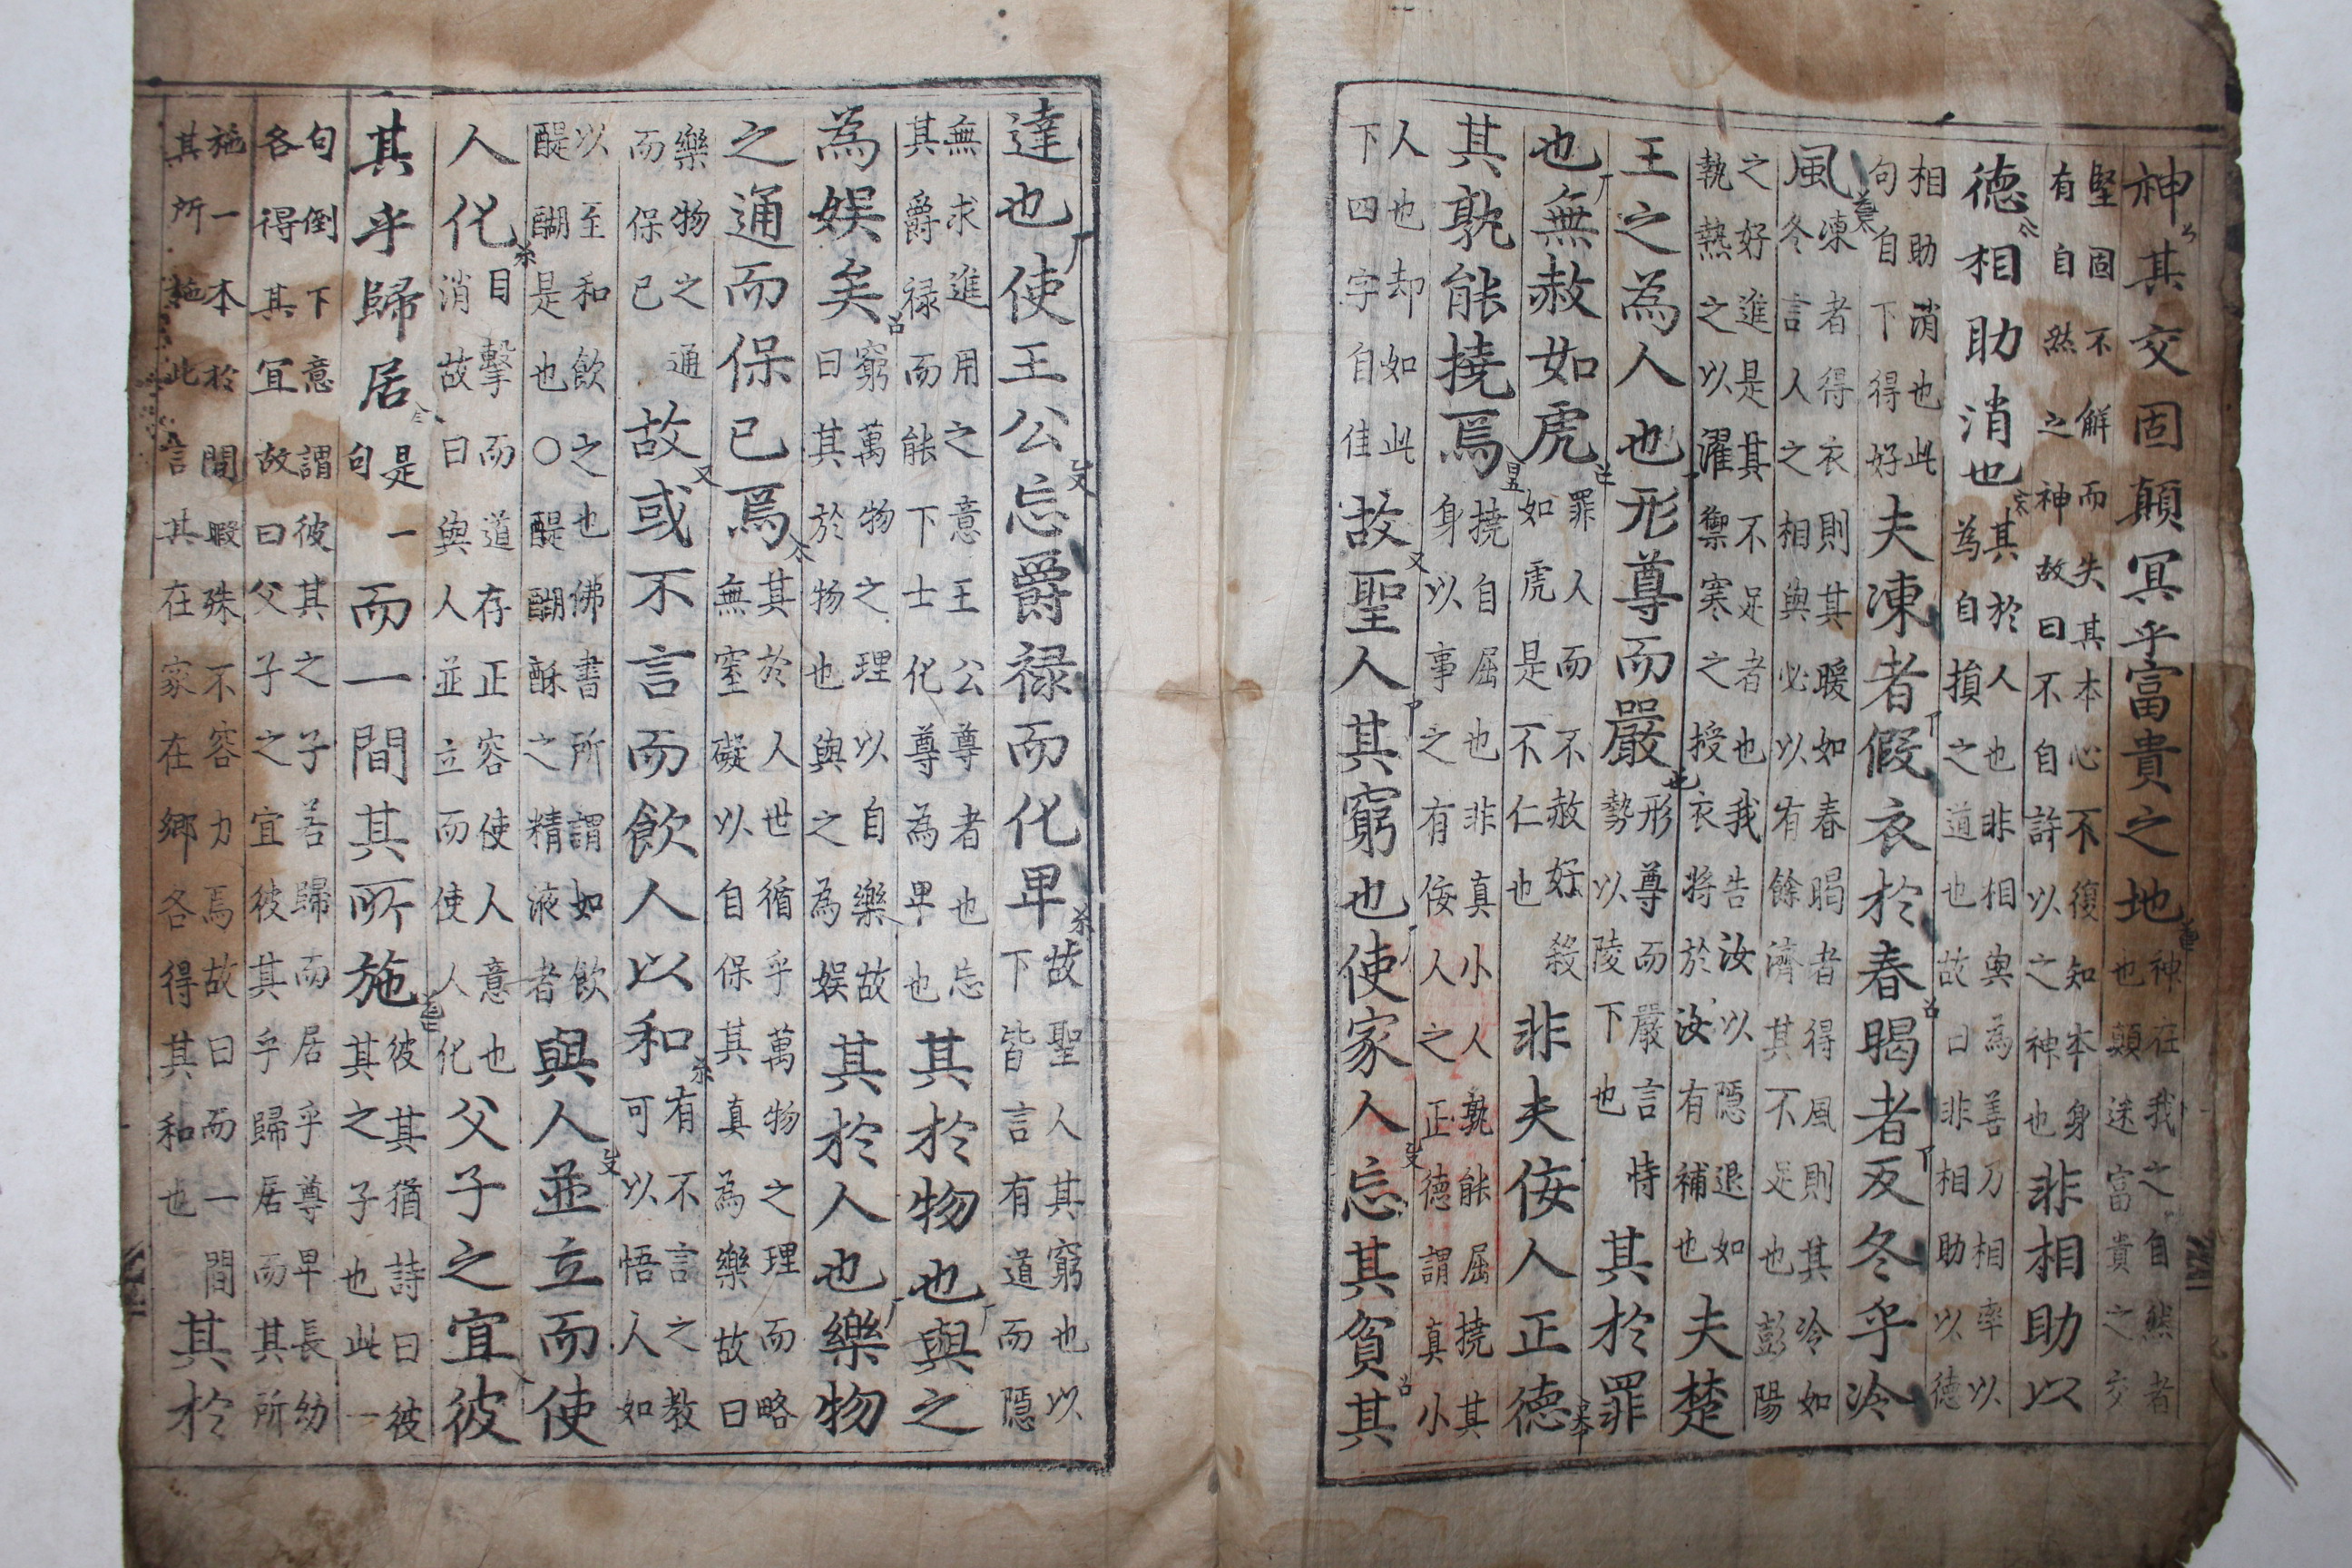 神其交固顛冥乎富貴之地神在我之自然者也顛迷富貴之交
堅固不解而失其本心不復知本身有自然之神故曰不自許以之神也非相助以
德相助消也其於人也非相與為善乃相率以為自損之道也故曰非相助以德
相助消也此句自下得好夫凍者假衣於春暍者反冬乎冷
風凍者得衣則其暖如春暍者得風則其冷如冬言人之相與必以有餘濟其不足也彭陽
之好進是其不足者也我告汝以隱退如執熱之以濯禦寒之授衣將於汝有補也夫楚
王之為人也形尊而嚴形尊而嚴言恃勢以陵下也其於罪
也無赦如虎罪人而不赦好殺如虎是不仁也非夫佞人正德
其孰能撓焉撓自屈也非真小人孰能屈撓其身以事之有佞人之正德謂真小
人也却如此下四字自佳故聖人其窮也使家人忘其貧其
達也使王公忘爵祿而化卑故聖人其窮也以下皆言有道而隱
無求進用之意王公尊者也忘其爵祿而能下士化尊為卑也其於物也與之
為娛矣窮萬物之理以自樂故曰其於物也與之為娛其於人也樂物
之通而保已焉其於人世循乎萬物之理而略無窒礙以自保其真為樂故曰
樂物之通而保已故或不言而飲人以和有不言之教可以悟人如
以至和飲之也佛書所謂如飲醍醐是也○醍醐酥之精液者與人並立而使
人化目擊而道存正容使人意也消故曰與人並立而使人化父子之宜彼
其乎歸居是一句而一間其所施彼其猶詩曰彼其之子也此一
句倒下意謂彼其之子若歸而居乎尊卑長幼各得其宜故曰父子之宜彼其乎歸居而其所
施一本於閒暇殊不容力焉故曰而一間其所施此言其在家在鄉各得其和也其於